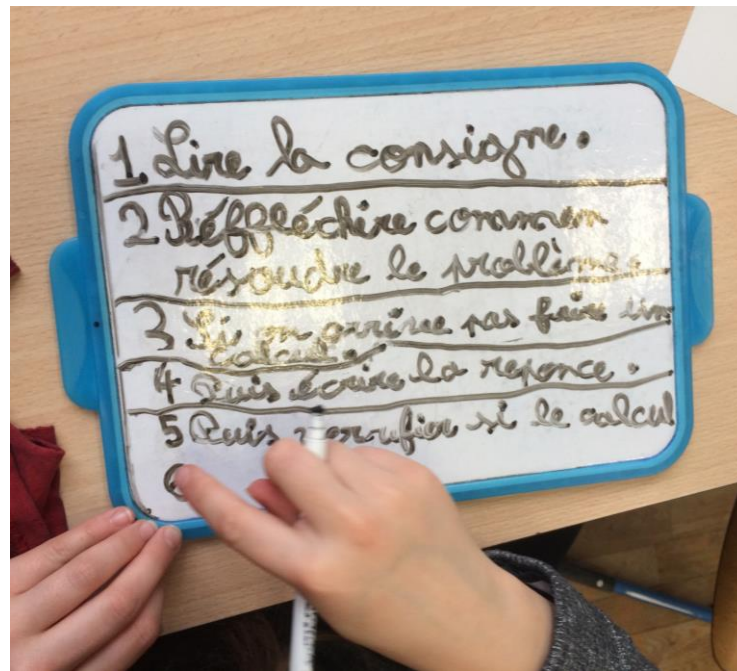 1. Lire la consigne.
2 Réffléchire commen
résoudre le problème.
3 Si on arrive pas faire un
calcul.
4 Puis écrire la reponce.
5 Puis verufier si le calcul